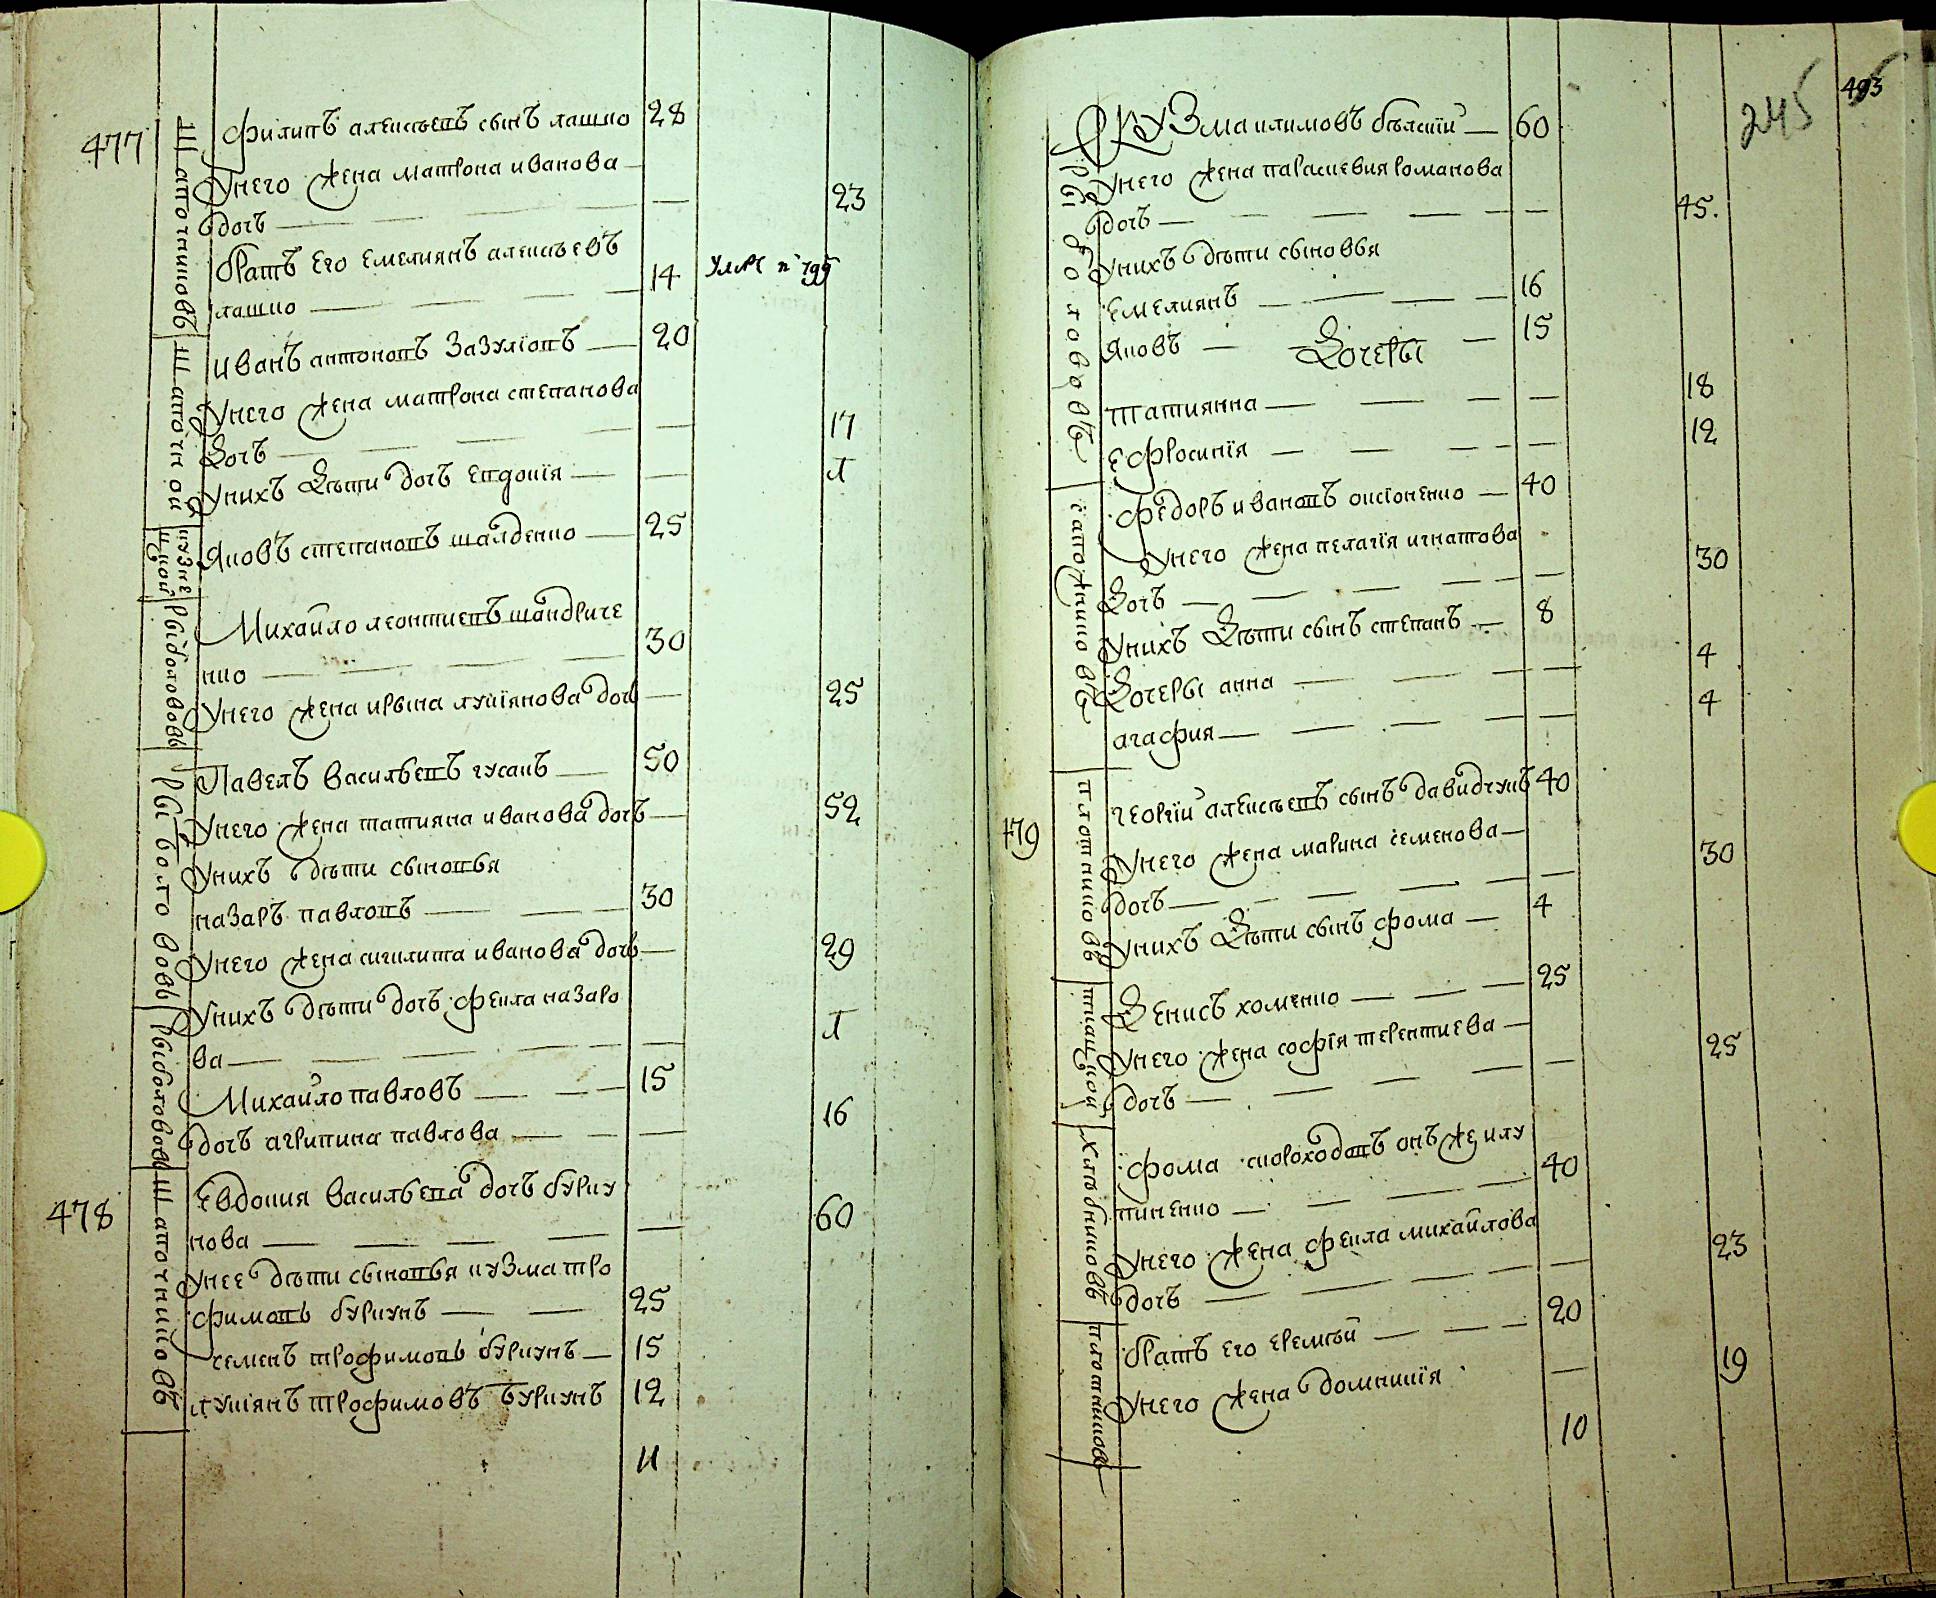 477
Шапочниковъ
филипъ алексѣевъ сынъ лашко 28
унего жена матрона иванова
дочь 23
братъ его емелиянъ алексѣевъ
лашко 14
Шапочной
иванъ антоновъ зазулIовъ 20
унего жена матрона степанова
дочь 17
унихъ дѣти дочь евдокїя
кузнешной
яковъ степановъ шалденко 25
рыболововъ
Михайло леонтиевъ шандриче
нко 30
унего жена ирына лукїянова дочь 25
рыболововъ
Павелъ васильевъ гусакъ 50
унего жена татияна иванова дочь 52
унихъ дѣти сыновья
назаръ павловъ 30
унего жена иванова дочь 29
унихъ дѣти дочь фекла назаро
ва
рыболововъ
Михайло павловъ 15
дочь агрипина павлова 16
478
Шапочниковъ
Евдокия васильева дочь бурку
нова 60
унее дѣти сыновья кузма тро
фимовъ буркунъ 25
семенъ трофимовъ буркунъ 15
лукїянъ трофимовъ буркунъ 12
11
245
493
рыболововъ
Кузма климовъ бѣлскїй 60
унего жена параскевия романова
дочь 45.
унихъ дѣти сыновья
Емелиянъ 16
яковъ 15
дочеры
татиянна 18
ефросинїя 12
сапожниковъ
федоръ ивановъ оксIоненко 40
унего жена пелагїя игнатова
дочь 30
унихъ дѣти сынъ степанъ 8
дочеры анна 4
агафия 4
479
плотниковъ
георгїй алексѣевъ сынъ давидчукъ 40
унего жена марина семенова
дочь 30
унихъ дѣти сынъ фома 4
ткацкой
Денисъ хоменко 25
унего жена софїя терентиева
дочь 25
хлѣбниковъ
фома скороходовъ онъже илу
пиненко 40
унего жена фекла михайлова
дочь 23
плотниковъ
братъ его еремѣй 20
унего жена домникїя 19
10